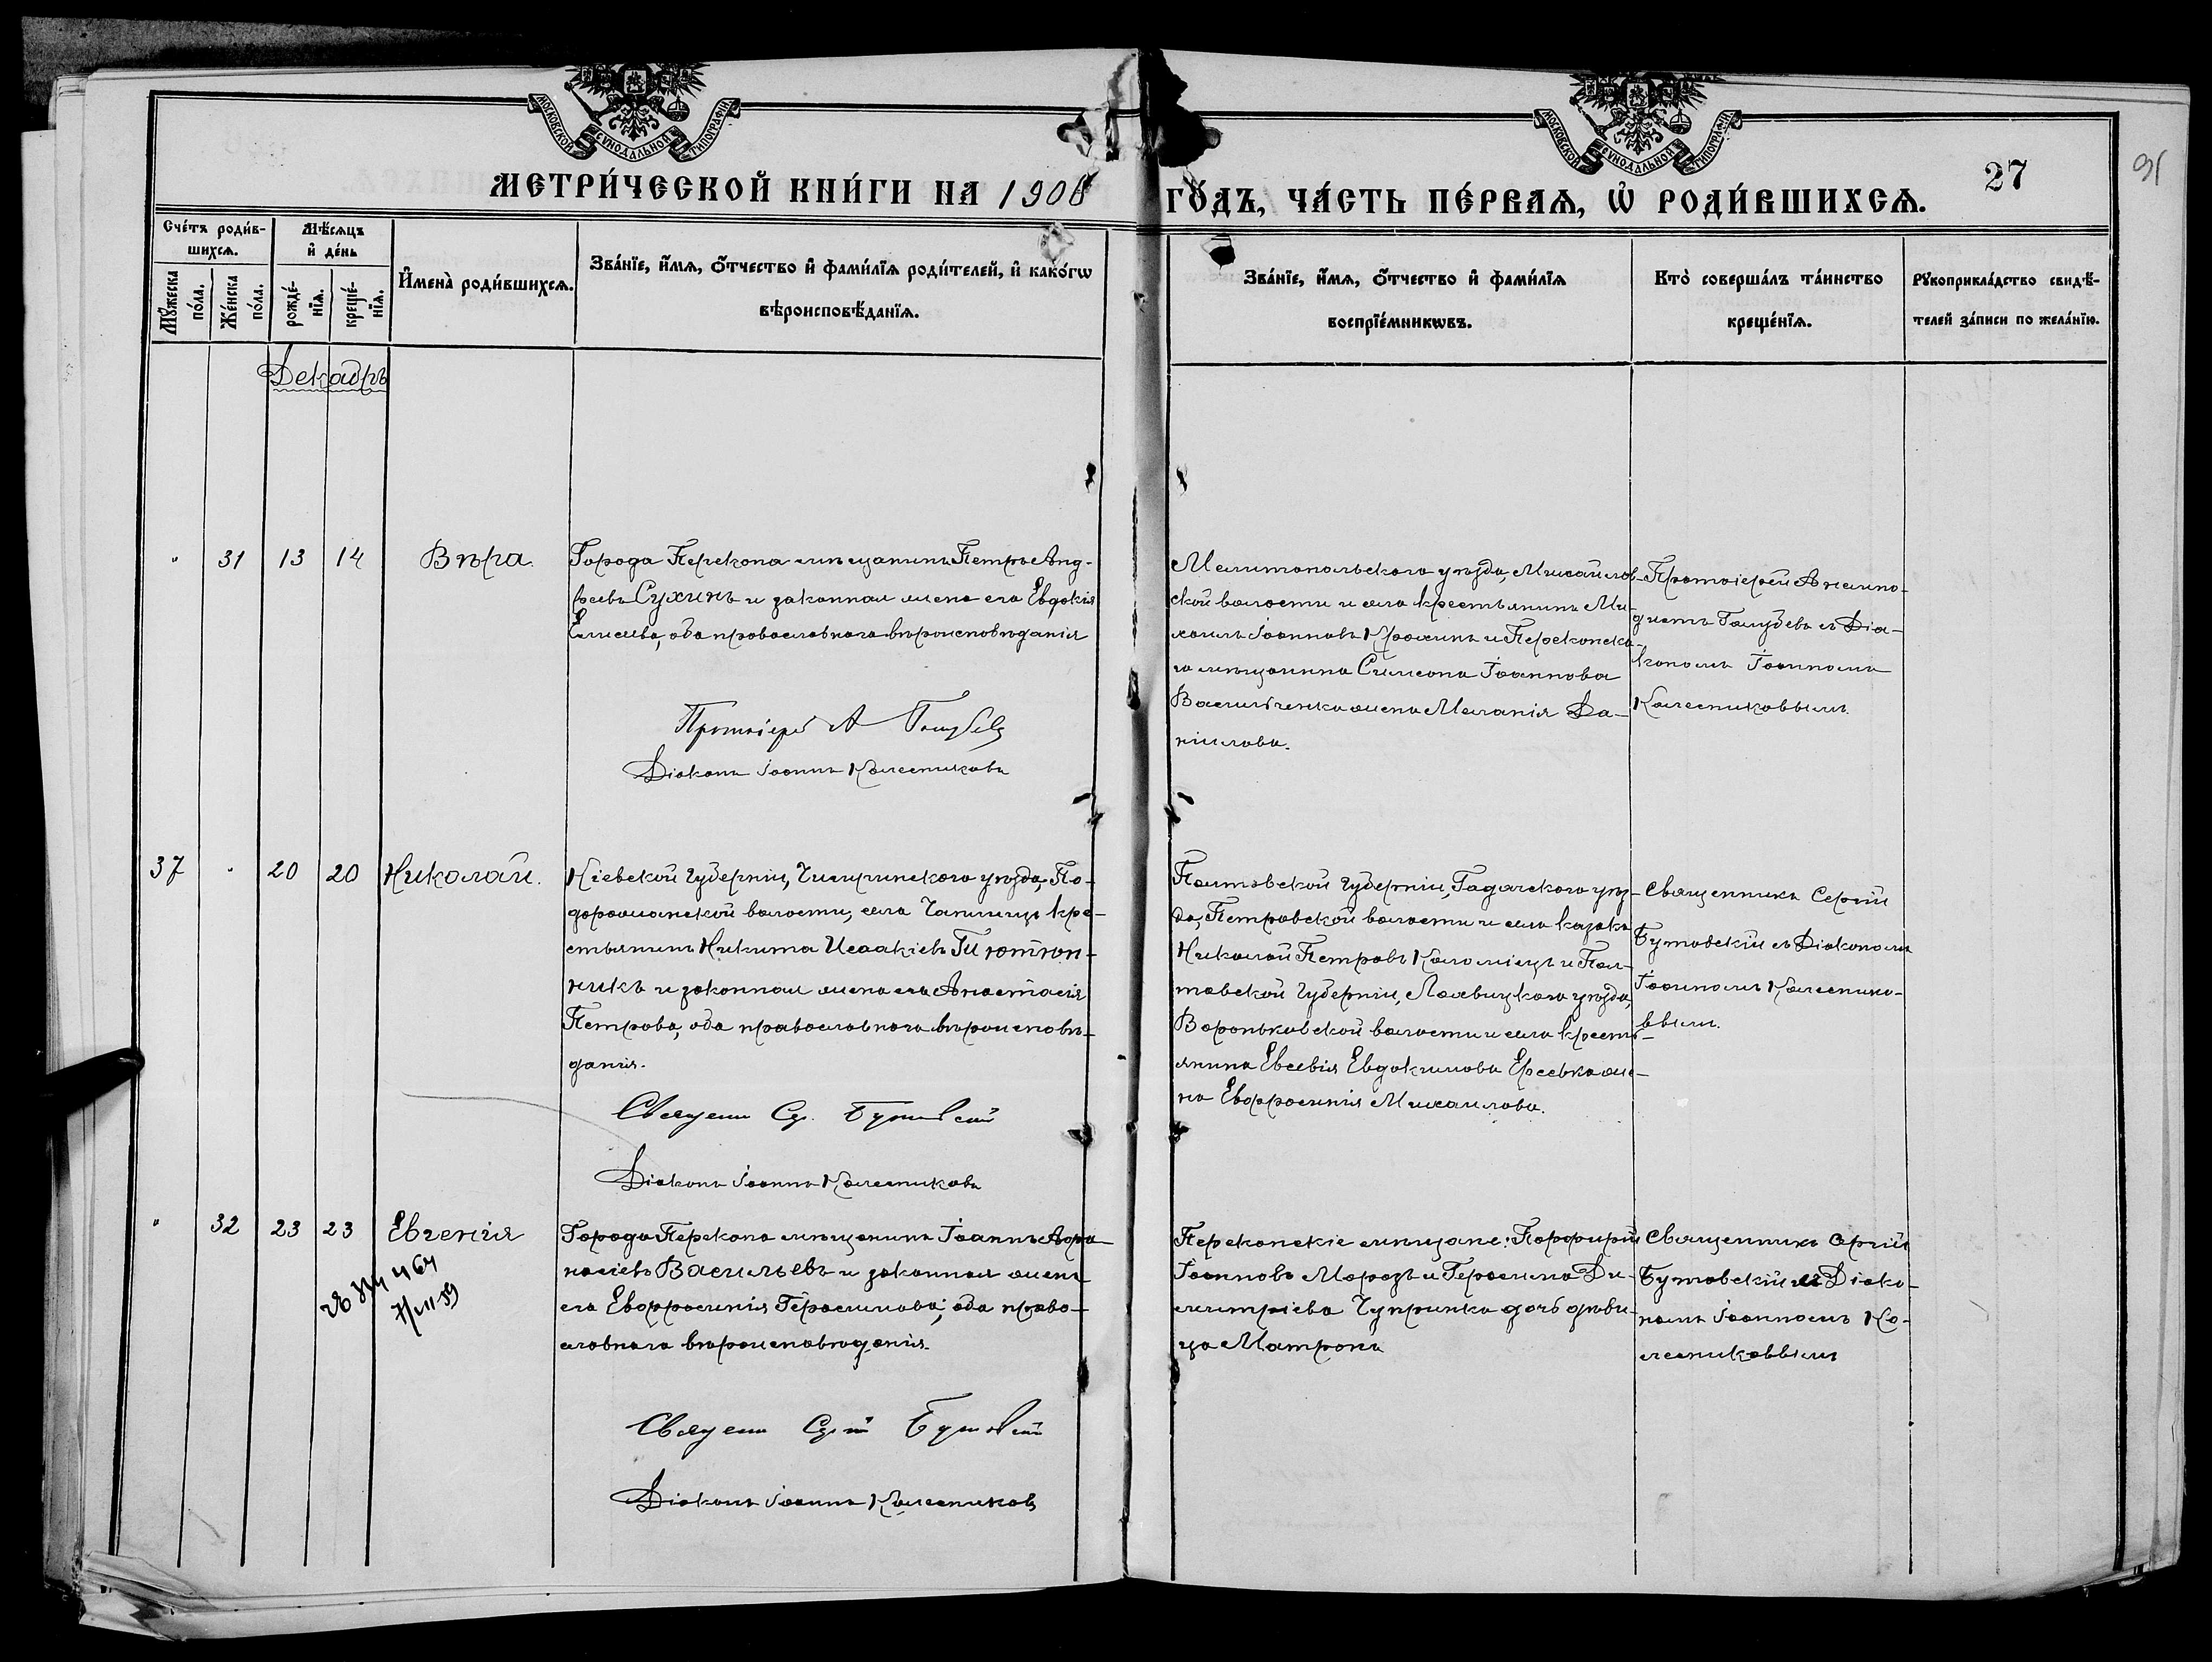 МОСКОВСКОЙ СѴНОДАЛЬНОЙ ТИПОГРАФІИ
МОСКОВСКОЙ СѴНОДАЛЬНОЙ ТИПОГРАФІИ
МЕТРИ́ЧЕСКОЙ КНИ́ГИ НА 1908 ГО́ДЪ, ЧА́СТЬ ПЕ́РВАѦ, Ѽ РОДИ́ВШИХСѦ.
27
Сче́тъ роди́в-
шихсѧ.
Мѣ́сѧцъ
и҆ де́нь
Мꙋ́жеска
по́ла.
Же́нска
по́ла.
рожде́-
нїѧ.
креще́-
нїѧ.
И҆мена̀ роди́вшихсѧ.
Зва́нїе, и҆́мѧ, ѻ҆́тчество и҆ фами́лїѧ роди́телей, и҆ како́гѡ
вѣроисповѣ́данїѧ.
Зва́нїе, и҆́мѧ, ѻ҆́тчество и҆ фами́лїѧ
воспрїе́мникѡвъ.
Кто̀ соверша́лъ та́инство
креще́нїѧ.
Рꙋкоприкла́дство свидѣ́-
телей за́писи по жела́нїю.
Декабрь
" 31 13 14 Вѣра.
Города Перекопа мѣщанинъ Петръ Анд-
реевъ Сухинъ и законная жена его Евдокія
Елисеева, оба православнаго вѣроисповѣданія
Протоіерей А Голубевъ
Діаконъ Іоаннъ Колесниковъ
Мелитопольскаго уѣзда, Михайлов-
ской волости и села крестьянинъ Ми-
хаилъ Іоанновъ и Перекопска-
го мѣщанина Симеона Іоаннова
Васильченка жена Меланія Да-
ніилова.
Протоіерей Анемпо-
дистъ Голубевъ съ Діа-
кономъ Іоанномъ
Колесниковымъ.
37 " 20 20 Николай.
Кіевской губерніи, Чигиринскаго уѣзда, По-
дорожанской волости, села кре-
стьянинъ Никита Исаакіевъ Тютюн-
никъ и законная жена его Анастасія
Петрова, оба православнаго вѣроисповѣ-
данія.
Священ Сер. Бутовскій
Діаконъ Іоаннъ Колесниковъ
Полтавской губерніи, Гадячскаго уѣз-
да, Петровской волости и села казакъ
Николай Петровъ Коломіецъ и Пол-
тавской губерніи, Лохвицкаго уѣзда,
Вороньковской волости и села кресть-
янина Евсевія Евдокимова же-
на Евфросинія Михаилова.
Священникъ Сергій
Бутовскій съ Діакономъ
Іоанномъ Колеснико-
ввымъ.
" 32 23 23 Евгенія
Города Перекопа мѣщанинъ Іоаннъ Афа-
насіевъ Васильевъ и законная жена
его Евфросинія Герасимова, оба право-
славнаго вѣроисповѣданія.
Священ Сергій Бутовскій
Діаконъ Іоаннъ Колесниковъ
Перекопскіе мѣщане: Порфирій
Іоанновъ Морозъ и Герасима Ди-
митріева Чупринка дочь дѣви-
ца Матрона
Священникъ Сергій
Бутовскій съ Діако-
номъ Іоанномъ Ко-
лесниковвымъ